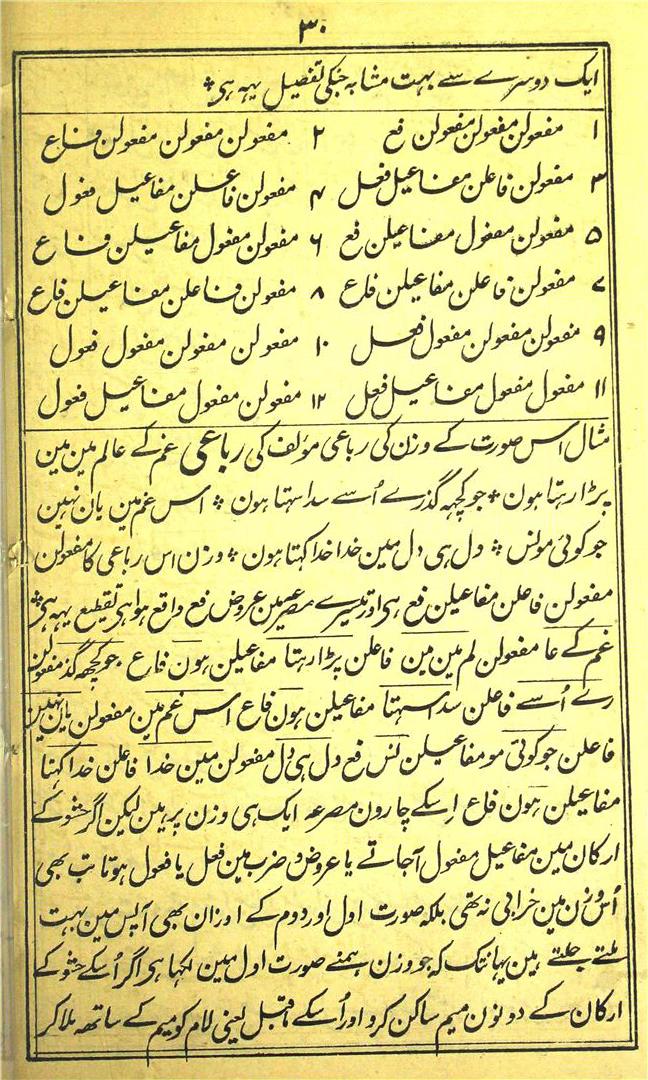 ۳۰
ایک دوسرے سے بہت مشابہ جنکی تفصیل یہہ ہی ٭
۱ مفعولن مفعولن مفعولن فع ۲ مفعولن مفعولن مفعولن فاع
۳ مفعولن فاعلن مفاعیل فعل ۴ مفعولن فاعلن مفاعیل فعول
۵ مفعولن مفعول مفاعیلن فع ۶ مفعولن مفعول مفاعیلن فاع
۷ مفعولن فاعلن مفاعیلن فاع ۸ مفعولن فاعلن مفاعیلن فاع
۹ مفعولن مفعولن مفعول فعل ۱۰ مفعولن مفعولن مفعول فعول
۱۱ مفعول مفعول مفاعیل فعل ۱۲ مفعولن مفعول مفاعیل فعول
مثال اس صورت کے وزن کی رباعی مؤلف کی رباعی غم کے عالم مین مین
پڑا رہتا ہون ٭ جو کچہہ گذرے اُسے سدا سہتا ہون ٭ اس غم مین یان نہین
جو کوئی مونس ٭ دل ہی دل مین خدا خدا کہتا ہون ٭ وزن اس رباعی کا مفعولن
مفعولن فاعلن مفاعیلن فع ہی اور تیسرے مصرعمین عروض فع واقع ہوا ہی تقطیع یہہ ہی ٭
غم کے عا مفعولن لم مین مین فاعلن پڑا رہتا مفاعیلن ہون فاع جو کچھہ گذ مفعولن
رے اُسے فاعلن سدا سہتا مفاعیلن ہون فاع اس غم مین مفعولن یان نہین
فاعلن جو کوئی مو مفاعیلن نس فع دل ہی دل مفعولن مین خدا فاعلن خدا کہتا
مفاعیلن ہون فاع اسکے چارون مصرعہ ایک ہی وزن پر ہین لیکن اگر حشو کے
ارکان مین مفاعیل مفعول آجاتے یا عروض و ضرب مین فعل یا فعول ہوتا تب بھی
اُس وزن مین خرابی نہ تھی بلکہ صورت اول اور دوم کے اوزان بھی آپس مین بہت
ملتے جلتے ہین یہانتک کہ جو وزن ہمنے صورت اول مین لکہا ہی اگر اُسکے حشو کے
ارکان کے دونون میم ساکن کرو اور اُسکے ماقبل یعنی لام کو میم کے ساتھہ ملا کر